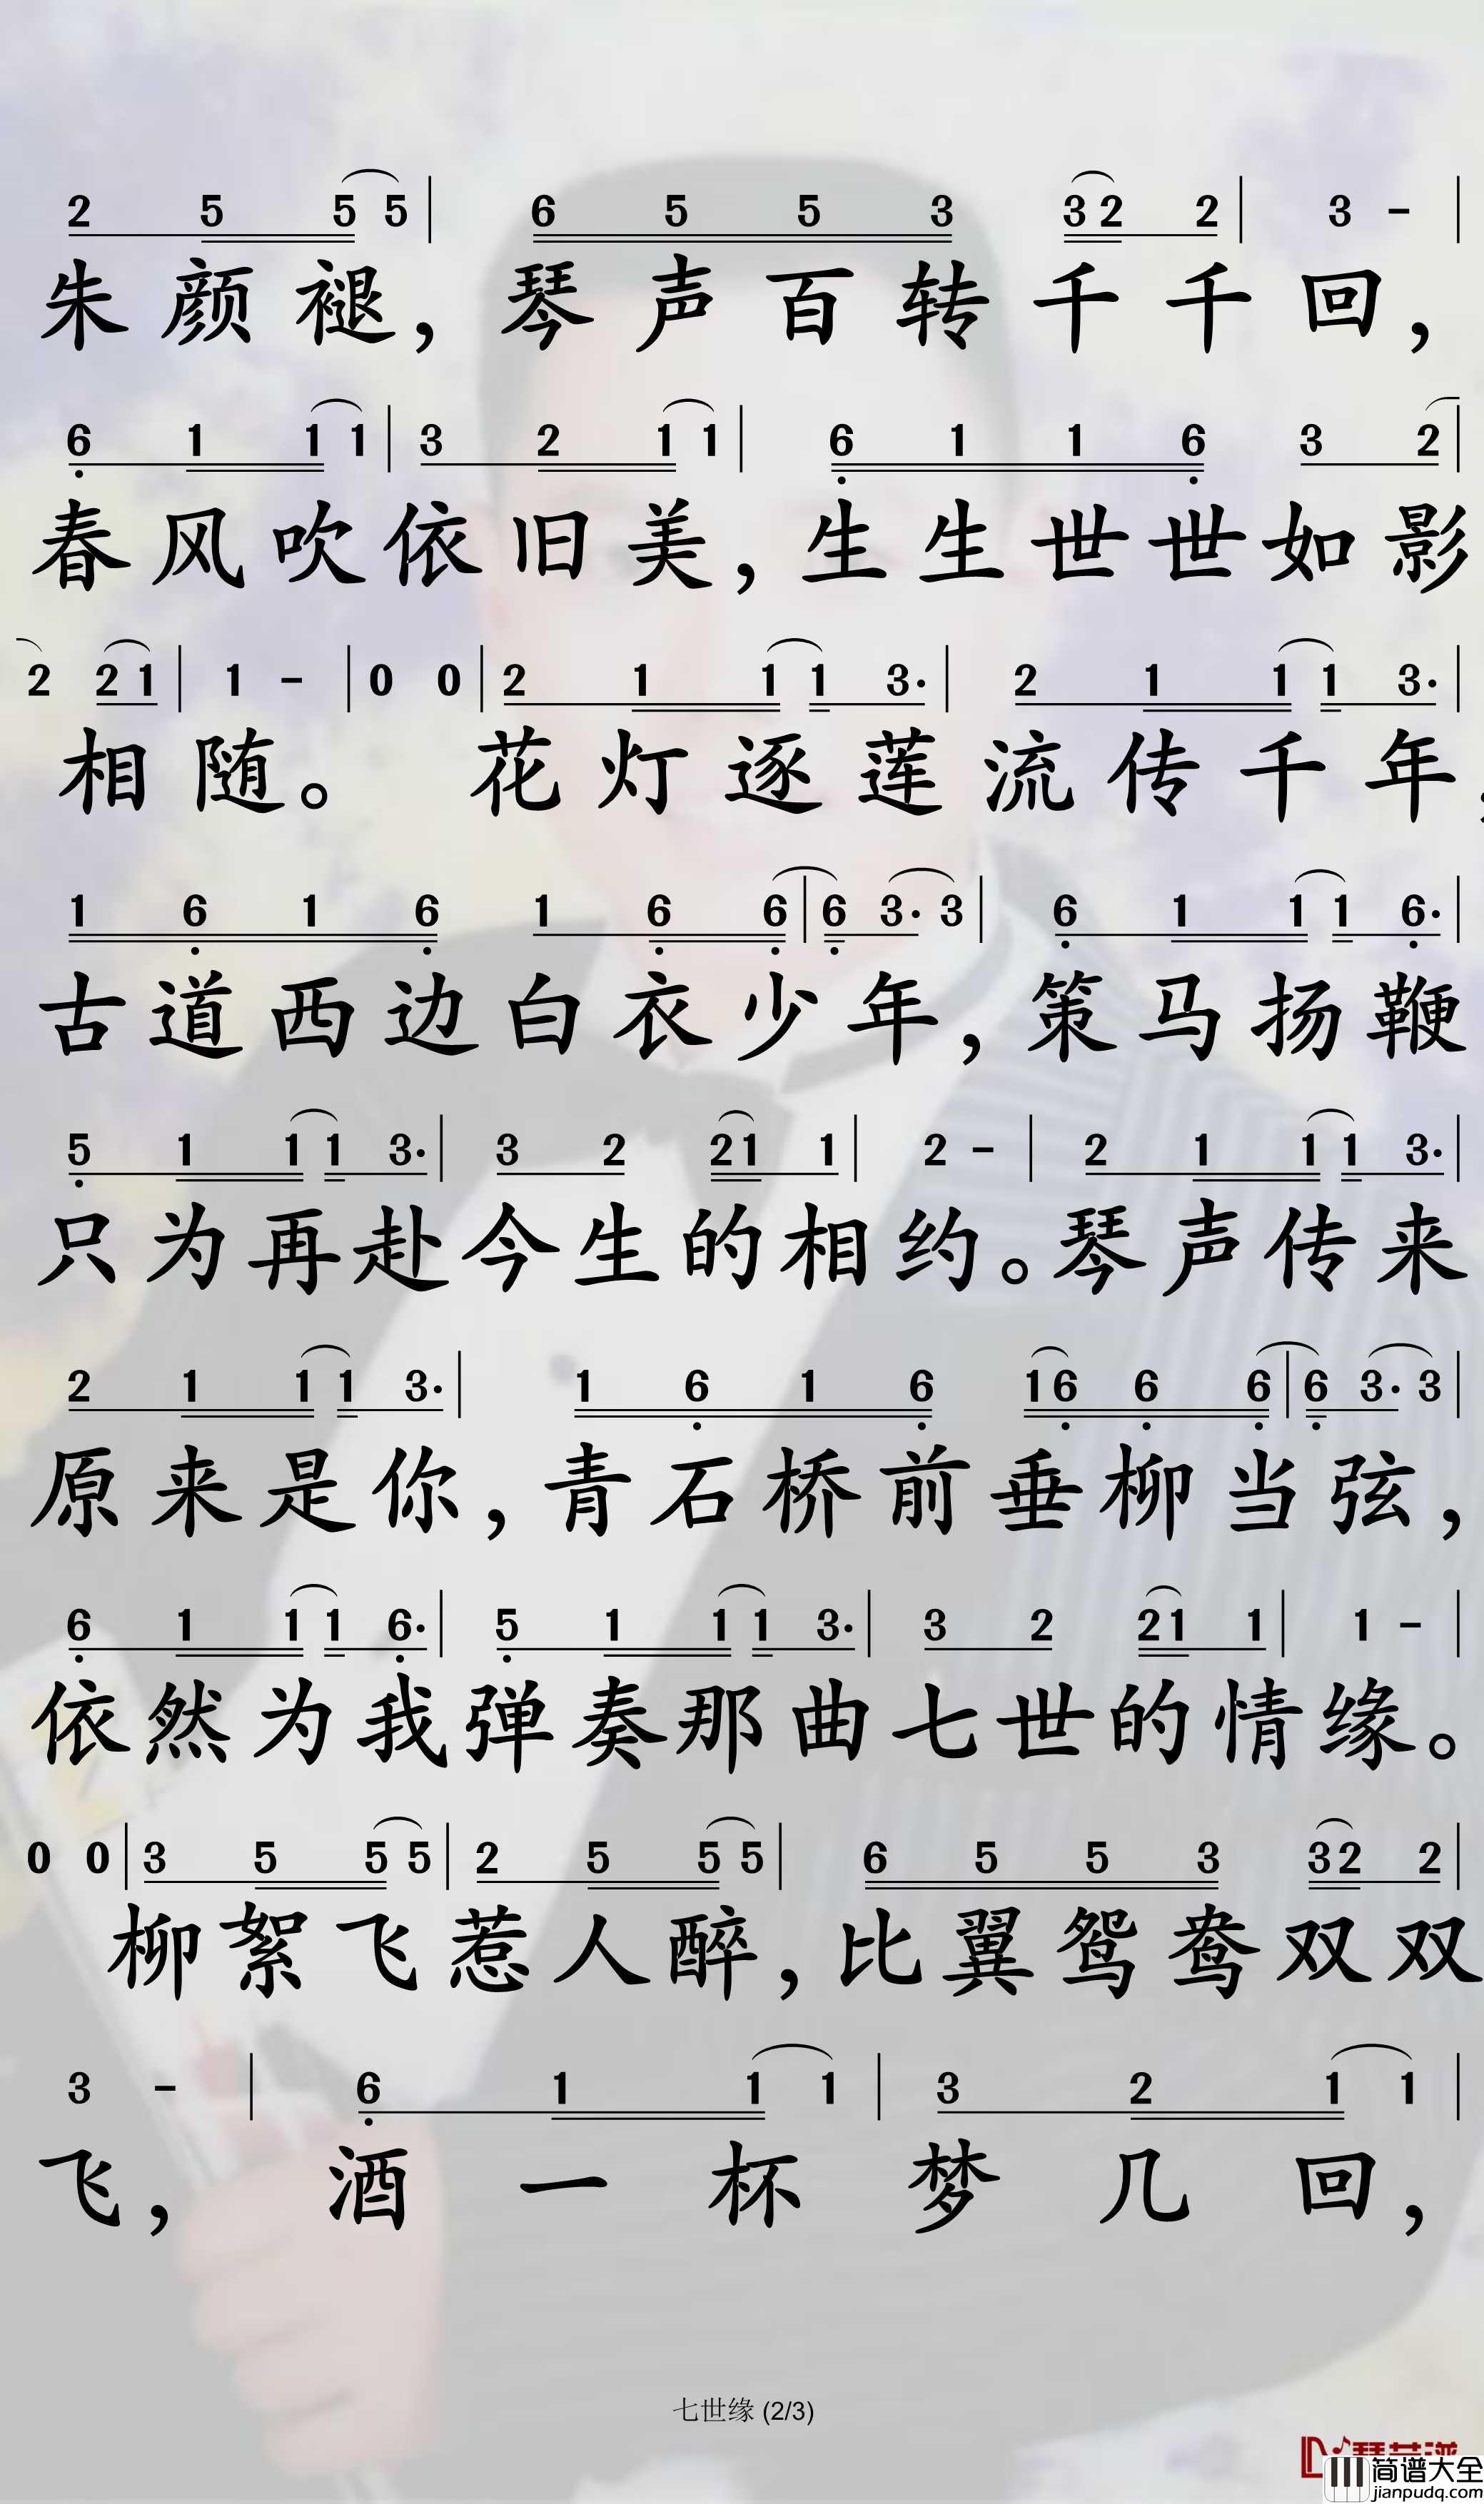 2 5 5 5 | 6 5 5 3 3 2 2 | 3 - |
朱颜褪，琴声百转千千回，
6 1 1 1 | 3 2 1 1 | 6 1 1 6 3 2 |
春风吹依旧美，生生世世如影
2 2 1 | 1 - | 0 0 | 2 1 1 1 3· | 2 1 1 1 3· |
相随。花灯逐莲流传千年，
1 6 1 6 1 6 6 | 6 3· 3 | 6 1 1 1 6· |
古道西边白衣少年，策马扬鞭
5 1 1 1 3· | 3 2 2 1 1 | 2 - | 2 1 1 1 3· |
只为再赴今生的相约。琴声传来
2 1 1 1 3· | 1 6 1 6 1 6 6 6 | 6 3· 3 |
原来是你，青石桥前垂柳当弦，
6 1 1 1 6· | 5 1 1 1 3· | 3 2 2 1 1 | 1 - |
依然为我弹奏那曲七世的情缘。
0 0 | 3 5 5 5 | 2 5 5 5 | 6 5 5 3 3 2 2 |
柳絮飞惹人醉，比翼鸳鸯双双
3 - | 6 1 1 1 | 3 2 1 1 |
飞，酒一杯梦几回，
七世缘 (2/3)
简谱大全
jianpudq.com